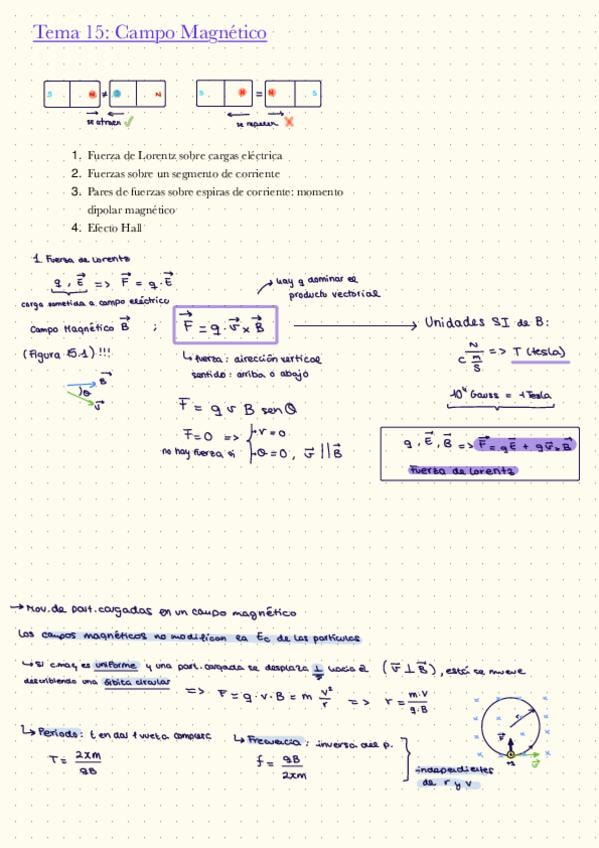 Tema 15: Campo Magnético
S N ≠ N
se atraen ✓
S N = N S
se repelen ✗
1. Fuerza de Lorentz sobre cargas eléctrica
2. Fuerzas sobre un segmento de corriente
3. Pares de fuerzas sobre espiras de corriente: momento
dipolar magnético
4. Efecto Hall
1. Fuerza de Lorentz
q, E⃗ => F⃗ = q·E⃗
carga sometida a campo eléctrico
hay q dominar el
producto vectorial
Campo Magnético B⃗ ; F⃗ = q·v⃗ x B⃗ → Unidades SI de B:
(Figura 15.1) !!!
↳ fuerza: dirección vertical
sentido: arriba o abajo
N / C m/s => T (tesla)
B⃗
θ
v⃗
10⁴ Gauss = 1 Tesla
F = q v B senθ
F=0 => v=0
no hay fuerza si θ=0, v⃗ || B⃗
q, E⃗, B⃗ => F⃗ = qE⃗ + qv⃗xB⃗
Fuerza de Lorentz
→ Mov. de part. cargadas en un campo magnético
Los campos magnéticos no modifican la Ec de las partículas
↳ Si cmag es uniforme y una part. cargada se desplaza ⊥ hacia él (v⃗ ⊥ B⃗), esta se mueve
describiendo una órbita circular => F = q·v·B = m v²/r => r = m·v/q·B
↳ Periodo: t en dar 1 vuelta completa
T = 2πm/qB
↳ Frecuencia: inversa del p.
f = qB/2πm
independientes
de r y v
r
F⃗
+q
v⃗